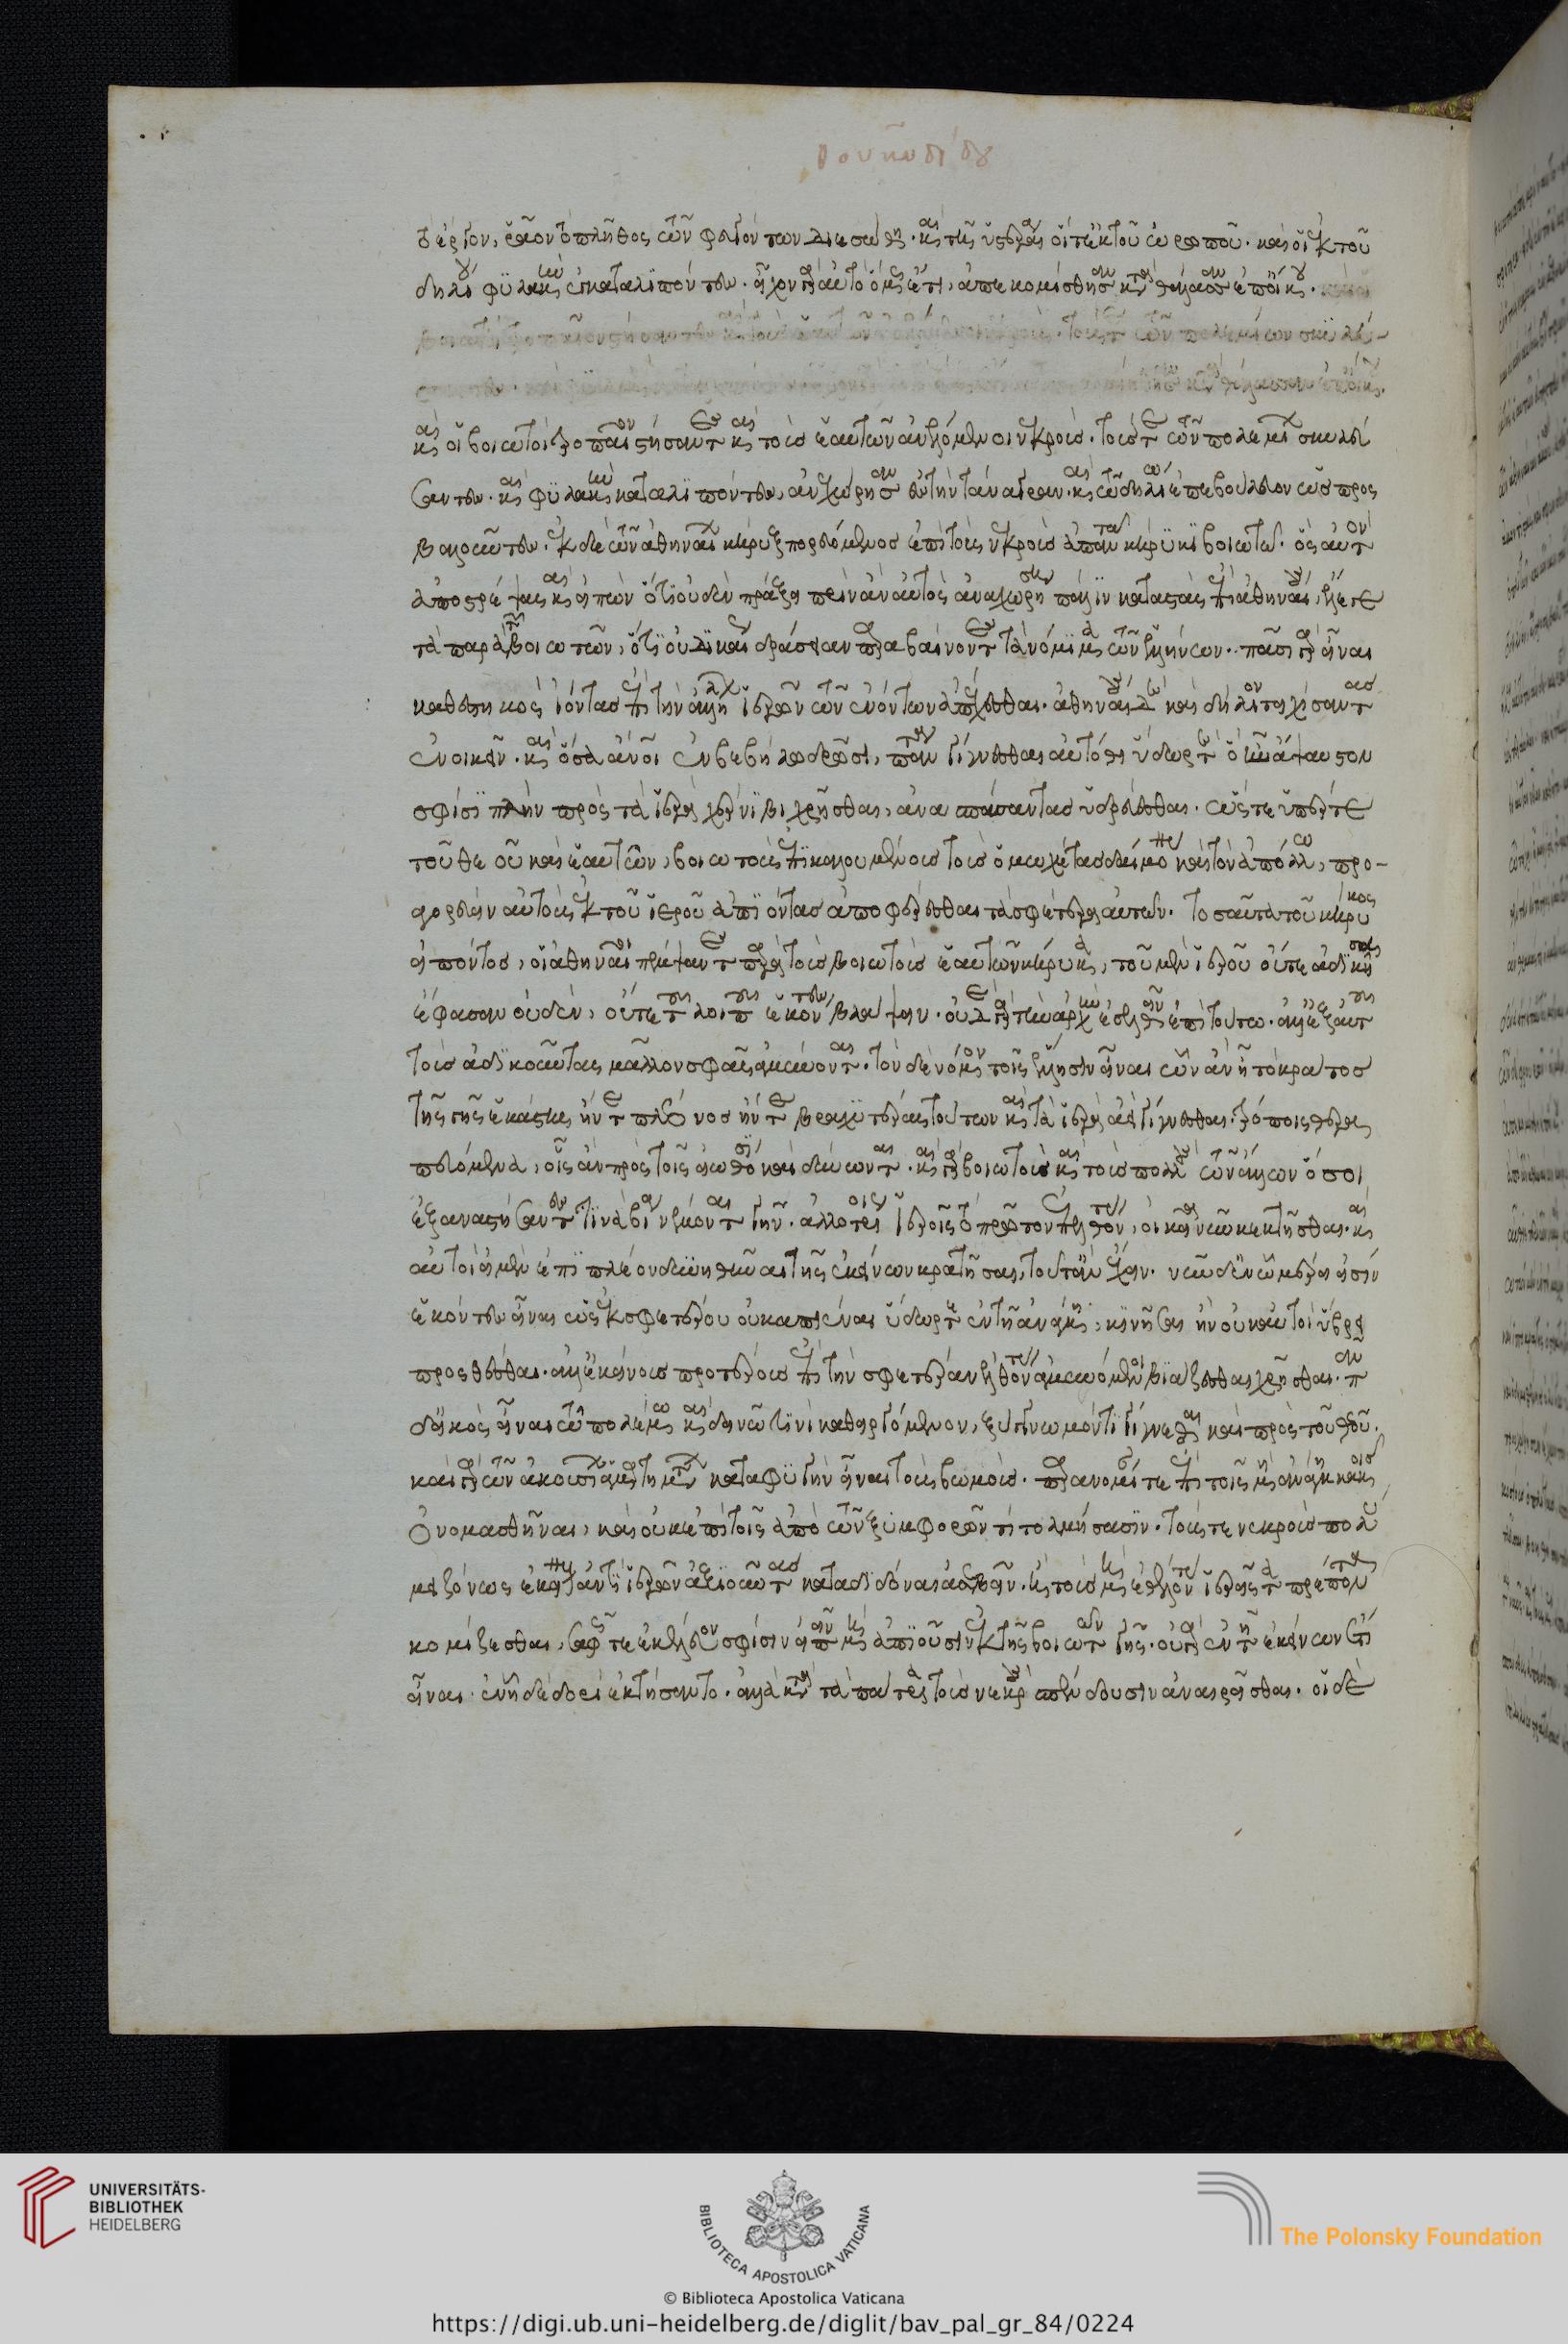 τὸ ἔργον, ῥᾶον τὸ πλῆθος τῶν φευγόντων διεσώθη. καὶ τῇ ὑστεραίᾳ οἵ τε ἐκ τοῦ ὠρωποῦ. καὶ οἱ ἐκ τοῦ
δηλίου φυλακὴν ἐγκαταλιπόντες. εἶχον γὰρ αὐτὸ ὅμως ἔτι, ἀπεκομίσθησαν κατὰ θάλασσαν ἐπ' οἴκου.
τοὺς τε τῶν πολεμίων σκυλεύ-
κατὰ θάλασσαν ἐπ' οἴκου.
καὶ οἱ βοιωτοὶ τροπαῖον στήσαντες καὶ τοὺς ἑαυτῶν ἀνελόμενοι νεκρούς. τούς τε τῶν πολεμίων σκυλεύ
σαντες. καὶ φυλακὴν καταλιπόντες, ἀνεχώρησαν ἐς τὴν τάναγραν. καὶ τῷ δηλίῳ ἐπεβούλευον ὡς προς
βαλοῦντες. ἐκ δὲ τῶν ἀθηναίων κῆρυξ πορευόμενος ἐπὶ τοὺς νεκροὺς ἀπαντᾷ κήρυκι βοιωτῷ. ὃς αὐτὸν
ἀποστρέψας καὶ εἰπὼν ὅτι οὐδὲν πράξει πρὶν ἂν αὐτὸς ἀναχωρήσῃ πάλιν καταστὰς ἐπὶ ἀθηναίους, ἔλεγε
τὰ παρὰ τῶν βοιωτῶν, ὅτι οὐ δικαίως δράσειαν παραβαίνοντες τὰ νόμιμα τῶν ἑλλήνων. πᾶσι γὰρ εἶναι
καθεστηκὸς ἰόντας ἐπὶ τὴν ἀλλήλων ἱερῶν τῶν ἐνόντων ἀπέχεσθαι. ἀθηναίους δὲ καὶ δήλιον τειχίσαντας
ἐνοικεῖν. καὶ ὅσα ἄνθρωποι ἐν βεβήλῳ δρῶσι, πάντα γίγνεσθαι αὐτόθι ὕδωρ τε ὃ ἦν ἄψαυστον
σφίσι πλὴν πρὸς τὰ ἱερὰ χέρνιβι χρῆσθαι, ἀνασπάσαντας ὑδρεύεσθαι. ὥστε ὑπέρ τε
τοῦ θεοῦ καὶ ἑαυτῶν, βοιωτοὺς ἐπικαλουμένους τοὺς ὁμωχέτας δαίμονας καὶ τὸν ἀπόλλω, προ-
αγορεύειν αὐτοὺς ἐκ τοῦ ἱεροῦ ἀπιόντας ἀποφέρεσθαι τὰ σφέτερα αὐτῶν. τοσαῦτα τοῦ κήρυκος
εἰπόντος, οἱ ἀθηναῖοι πέμψαντες παρὰ τοὺς βοιωτοὺς ἑαυτῶν κήρυκα, τοῦ μὲν ἱεροῦ οὔτε ἀδικῆσαι
ἔφασαν οὐδὲν, οὔτε τοῦ λοιποῦ ἑκόντες βλάψειν. οὐδὲ γὰρ τὴν ἀρχὴν ἐσελθεῖν ἐπὶ τούτῳ. ἀλλ' ἐξ αὐτοῦ
τοὺς ἀδικοῦντας μᾶλλον σφᾶς ἀμύνωνται. τὸν δὲ νόμον τοῖς ἕλλησιν εἶναι ὧν ἂν ᾖ τὸ κράτος
τῆς γῆς ἑκάστης ἤν τε πλέονος ἤν τε βραχυτέρας τούτων καὶ τὰ ἱερὰ ἀεὶ γίγνεσθαι. τρόποις θερα
πευόμενα, οἷς ἂν πρὸς τοῖς εἰωθόσι καὶ δύνωνται. καὶ γὰρ βοιωτοὺς καὶ τοὺς πολλοὺς τῶν ἄλλων ὅσοι
ἐξαναστήσαντές τινα βίᾳ νέμονται γῆν. ἀλλοτρίοις ἱεροῖς τὸ πρῶτον ἐπελθόντες, οἰκεῖα νῦν κεκτῆσθαι. καὶ
αὐτοὶ εἰ μὲν ἐπὶ πλέον δυνηθῆναι τῆς ἐκείνων κρατῆσαι, τοῦτ' ἂν ἔχειν. νῦν δὲ ἐν ᾧ μέρει εἰσίν
ἑκόντες εἶναι ὡς ἐκ σφετέρου οὐκ ἀπιέναι ὕδωρ τε ἐν τῇ ἀνάγκῃ, κινῆσαι ἣν οὐκ αὐτοὶ ὕβρει
προσθέσθαι. ἀλλ' ἐκείνους προτέρους ἐπὶ τὴν σφετέραν ἐλθόντας ἀμυνόμενοι βιάζεσθαι χρῆσθαι. πᾶν
δ' εἰκὸς εἶναι τῷ πολέμῳ καὶ δεινῷ τινὶ κατειργόμενον, ξύγγνωμόν τι γίγνεσθαι καὶ πρὸς τοῦ θεοῦ.
καὶ γὰρ τῶν ἀκουσίων ἁμαρτημάτων καταφυγὴν εἶναι τοὺς βωμούς. παρανομίαν τε ἐπὶ τοῖς μὴ ἀνάγκῃ κακοῖς
ὀνομασθῆναι, καὶ οὐκ ἐπὶ τοῖς ἀπὸ τῶν ξυμφορῶν τι τολμήσασιν. τούς τε νεκροὺς πολὺ
μειζόνως ἐκείνους ἀντὶ ἱερῶν ἀξιοῦντας καταδιδόναι ἀσεβεῖν. ἢ τοὺς μὴ ἐθέλοντας ἱεροῖς τὰ πρέποντα
κομίζεσθαι. σαφῶς τε ἐκέλευον σφίσιν εἰπεῖν μὴ ἀπιοῦσιν ἐκ τῆς βοιωτῶν γῆς. οὐ γὰρ ἐν τῇ ἐκείνων ἔτι
εἶναι. ἐν ᾗ δὲ δορὶ ἐκτήσαντο. ἀλλὰ κατὰ τὰ πάτρια τοὺς νεκροὺς σπένδουσιν ἀναιρεῖσθαι. οἱ δὲ
UNIVERSITÄTS-
BIBLIOTHEK
HEIDELBERG
BIBLIOTECA APOSTOLICA VATICANA
The Polonsky Foundation
© Biblioteca Apostolica Vaticana
https://digi.ub.uni-heidelberg.de/diglit/bav_pal_gr_84/0224